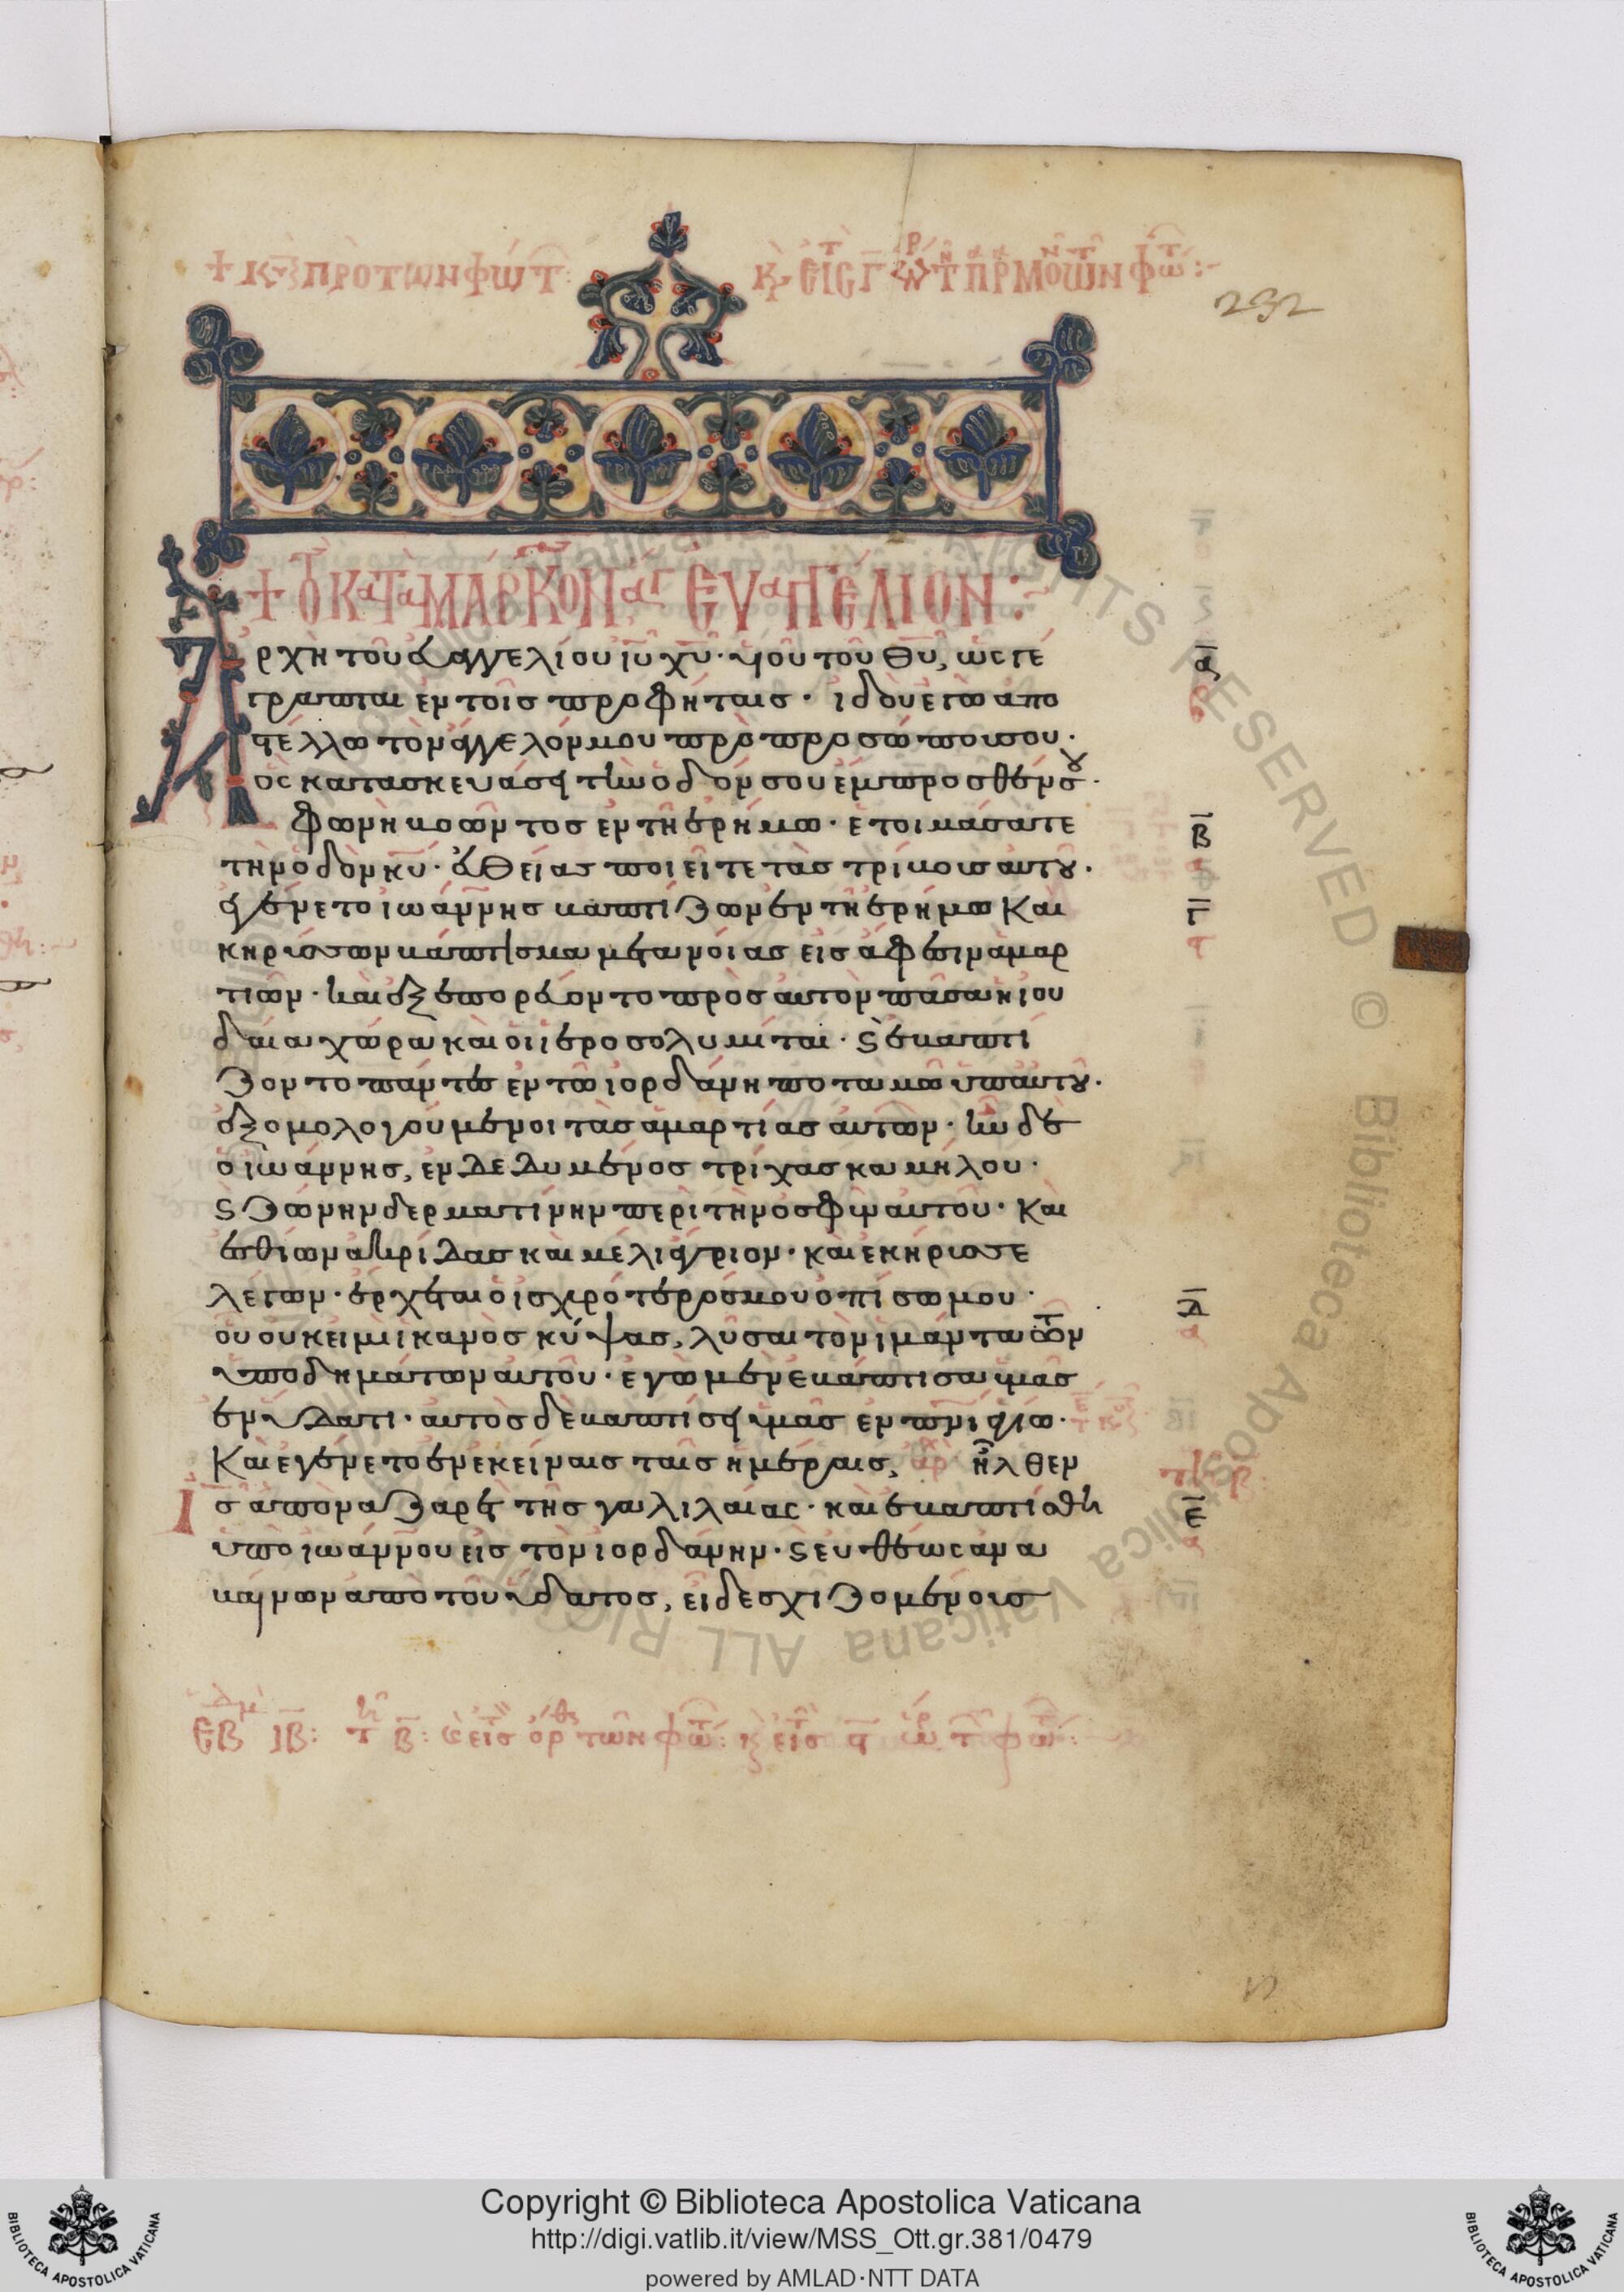 + Κυ προ των φωτ
232
+ Το κατα Μαρκον αγ ευαγγελιον :
Αρχὴ τοῦ εὐαγγελίου ἰυ χυ · υἱοῦ τοῦ θυ, ὡς γέ
γραπται ἐν τοῖς προφήταις · ἰδοὺ ἐγὼ ἀπο
στέλλω τὸν ἄγγελόν μου πρὸ προσώπου σου ·
ὃς κατασκευάσει τὴν ὁδόν σου ἔμπροσθέν σου ·
Φωνὴ βοῶντος ἐν τῆ ἐρήμω · ἑτοιμάσατε
τὴν ὁδὸν κυ · εὐθείας ποιεῖτε τὰς τρίβους αὐτοῦ ·
ἐγένετο ἰωάννης βαπτίζων ἐν τῆ ἐρήμω Καὶ
κηρύσσων βάπτισμα μετανοίας εἰς ἄφεσιν ἁμαρ
τιῶν · καὶ ἐξεπορεύοντο πρὸς αὐτὸν πᾶσα ἡ ἰου
δαία χώρα καὶ οἱ ἱεροσολυμίται · ϛ ἐβαπτί
ζοντο πάντες ἐν τῶ ἰορδάνη ποταμῶ ὑπ αὐτοῦ ·
ἐξομολογούμενοι τὰς ἁμαρτίας αὐτῶν · ἦν δὲ
ὁ ἰωάννης, ἐνδεδυμένος τρίχας καμήλου ·
ϛ ζώνην δερματίνην περὶ τὴν ὀσφὺν αὐτοῦ · Καὶ
ἐσθίων ἀκρίδας καὶ μέλι ἄγριον · καὶ ἐκήρυσσε
λέγων · ἔρχεται ὁ ἰσχυρότερός μου ὀπίσω μου ·
οὗ οὐκ εἰμὶ ἱκανὸς κύψας, λῦσαι τὸν ἱμάντα τῶν
ὑποδημάτων αὐτοῦ · ἐγὼ μὲν ἐβάπτισα ὑμᾶς
ἐν ὕδατι · αὐτὸς δὲ βαπτίσει ὑμᾶς ἐν πνι ἁγίω ·
Καὶ ἐγένετο ἐν ἐκείναις ταῖς ἡμέραις, ἀρ ἦλθεν
Ις ἀπὸ ναζαρὲτ τῆς γαλιλαίας · καὶ ἐβαπτίσθη
ὑπὸ ἰωάννου εἰς τὸν ἰορδάνην · ϛ εὐθέως ἀνα
βαίνων ἀπὸ τοῦ ὕδατος, εἶδε σχιζομένους
α
β
γ
δ
ε
Copyright © Biblioteca Apostolica Vaticana
http://digi.vatlib.it/view/MSS_Ott.gr.381/0479
powered by AMLAD·NTT DATA
BIBLIOTECA APOSTOLICA VATICANA
BIBLIOTECA APOSTOLICA VATICANA